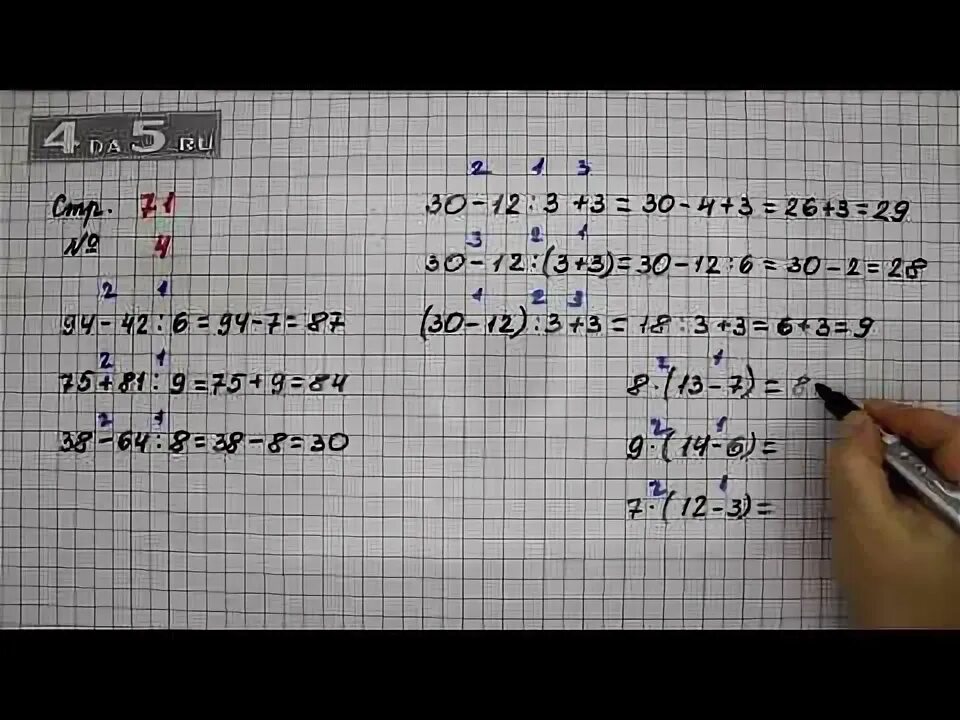 4 DA 5 RU
Стр. 71
№ 4
2 1
94-42:6=94-7=87
2 1
75+81:9=75+9=84
2 1
38-64:8=38-8=30
2 1 3
30-12:3+3=30-4+3=26+3=29
3 2 1
30-12:(3+3)=30-12:6=30-2=28
1 2 3
(30-12):3+3=18:3+3=6+3=9
2 1
8·(13-7)=8
2 1
9·(14-6)=
2 1
7·(12-3)=